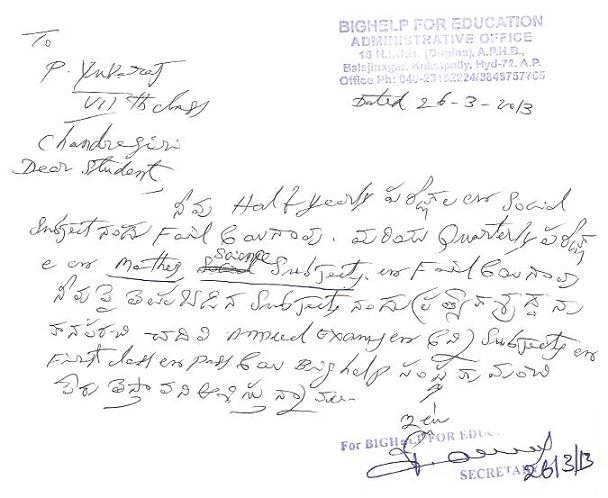 To
BIGHELP FOR EDUCATION
ADMINISTRATIVE OFFICE
16 H.I.G.H. (Duplex), A.P.H.B.,
Balajinagar, Kukatpally, Hyd-72. A.P.
Office Ph: 040-23152224/9849757765
P. Yuvaraj
VII th class
Dated 26-3-2013
Chandragiri
Dear Student
నీవు Half yearly పరీక్షల లో Social
Subject నందు Fail అయినావు. మరియు Quarterly పరీక్ష
ల లో Maths Science Subjects లో Fail అయినావు
నీవు పై తెలుపబడిన Subjects నందు ప్రత్యేక శ్రద్ధను
కనపరచి చదివి Annual Exams లో అన్ని Subjects లో
First class లో pass అయి Big help సంస్థకు మంచి
పేరు తెస్తావని ఆశిస్తున్నాను.
ఇట్లు
For BIGHELP FOR EDUC
SECRETA
26/3/13